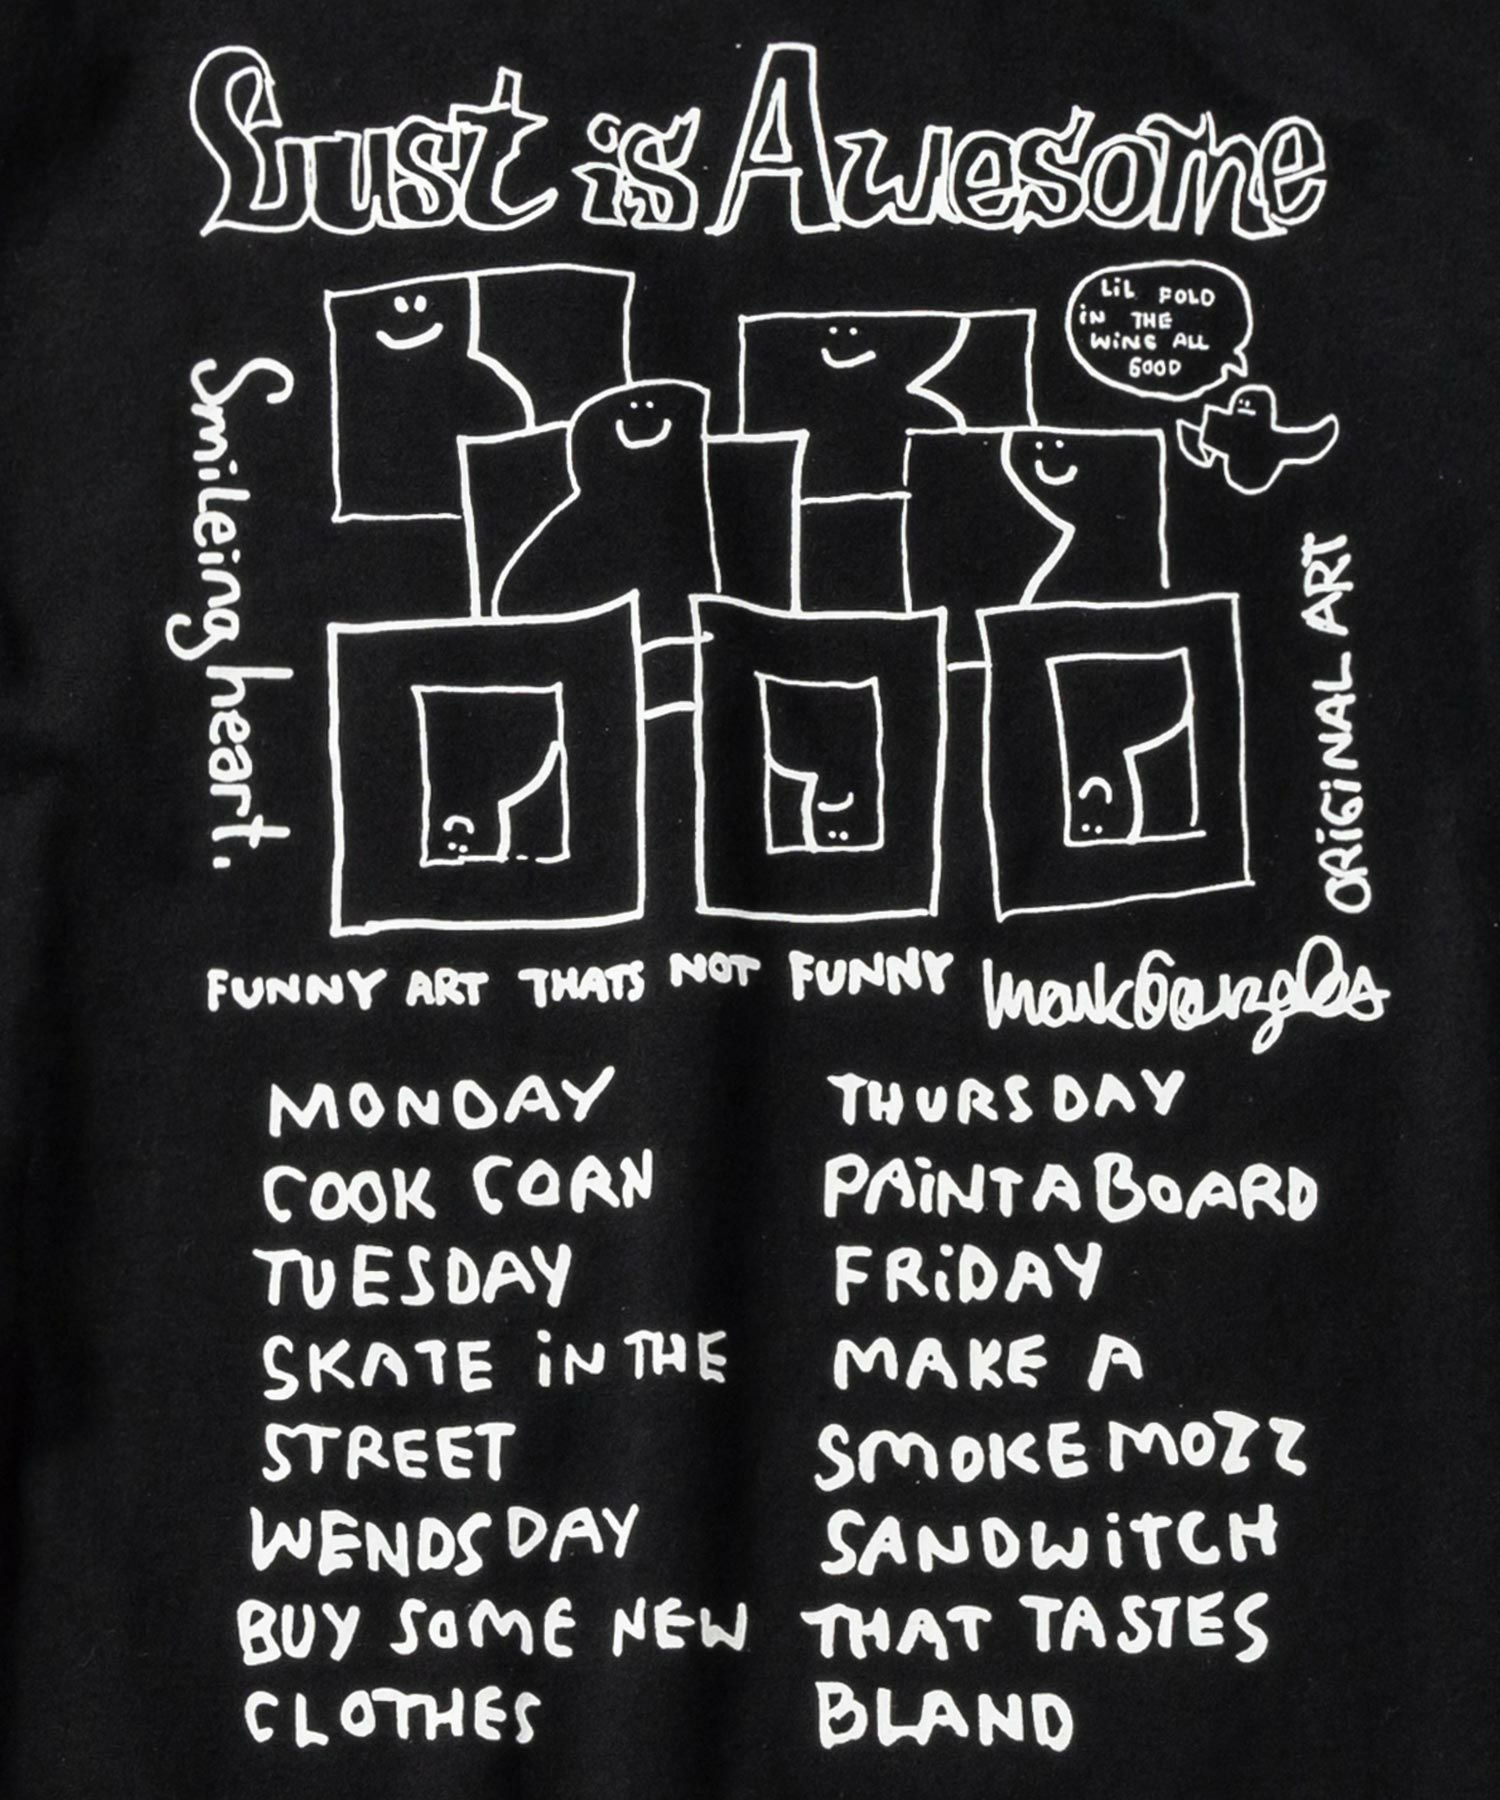 Lust is Awesome
LiL FOLD
iN THE
WiNG ALL
GOOD
Smileing heart.
ORiGiNAL ART
FUNNY ART THATS NOT FUNNY
Mark Gonzales
MONDAY
COOK CORN
TUESDAY
SKATE iN THE
STREET
WENDSDAY
BUY SOME NEW
CLOTHES
THURSDAY
PAiNT A BOARD
FRiDAY
MAKE A
SMOKE MOZZ
SANDWiTCH
THAT TASTES
BLAND